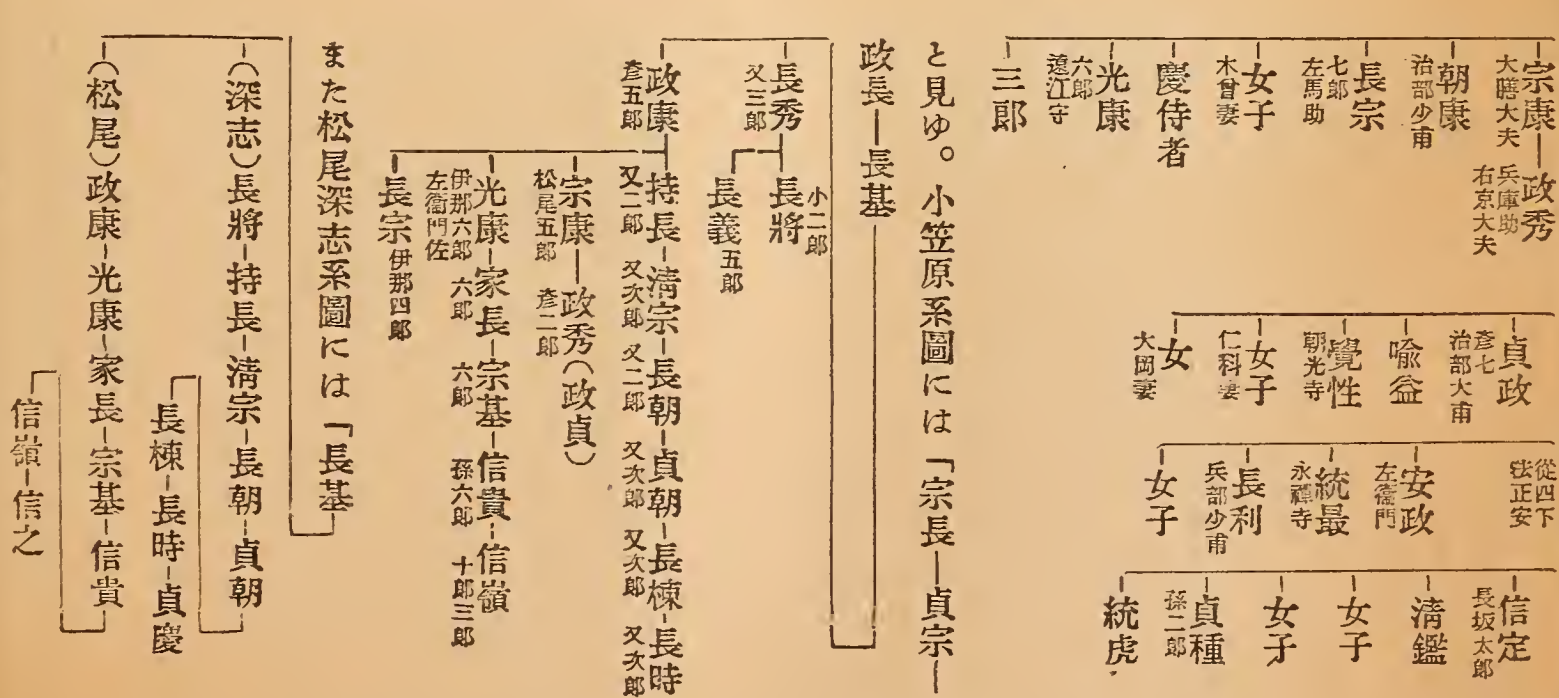 宗康—政秀
大膳大夫 兵庫助
右京大夫
朝康
治部少甫
長宗
七郎
左馬助
女子
木曾妻
慶侍者
光康
六郎
遠江守
三郎
貞政
彥七
治部大甫
喩益
覺性
朝光寺
女子
仁科妻
女
大岡妻
從四下
法正安
安政
左衞門
統最
永禪寺
長利
兵部少甫
女子
信定
長坂太郎
淸鑑
女子
女子
貞種
孫二郎
統虎
と見ゆ。小笠原系圖には「宗長—貞宗—
政長—長基
長秀
又三郎
長將 小二郎
長義 五郎
政康
彥五郎
持長-淸宗-長朝-貞朝-長棟-長時
又二郎 又次郎 又二郎 又次郎 又次郎 又次郎
宗康—政秀(政貞)
松尾五郎 彥二郎
光康-家長-宗基-信貴-信嶺
伊那六郎 六郎 六郎 孫六郎 十郎三郎
左衞門佐
長宗 伊那四郎
また松尾深志系圖には「長基
(深志)長將-持長-淸宗-長朝-貞朝
長棟-長時-貞慶
(松尾)政康-光康-家長-宗基-信貴
信嶺-信之